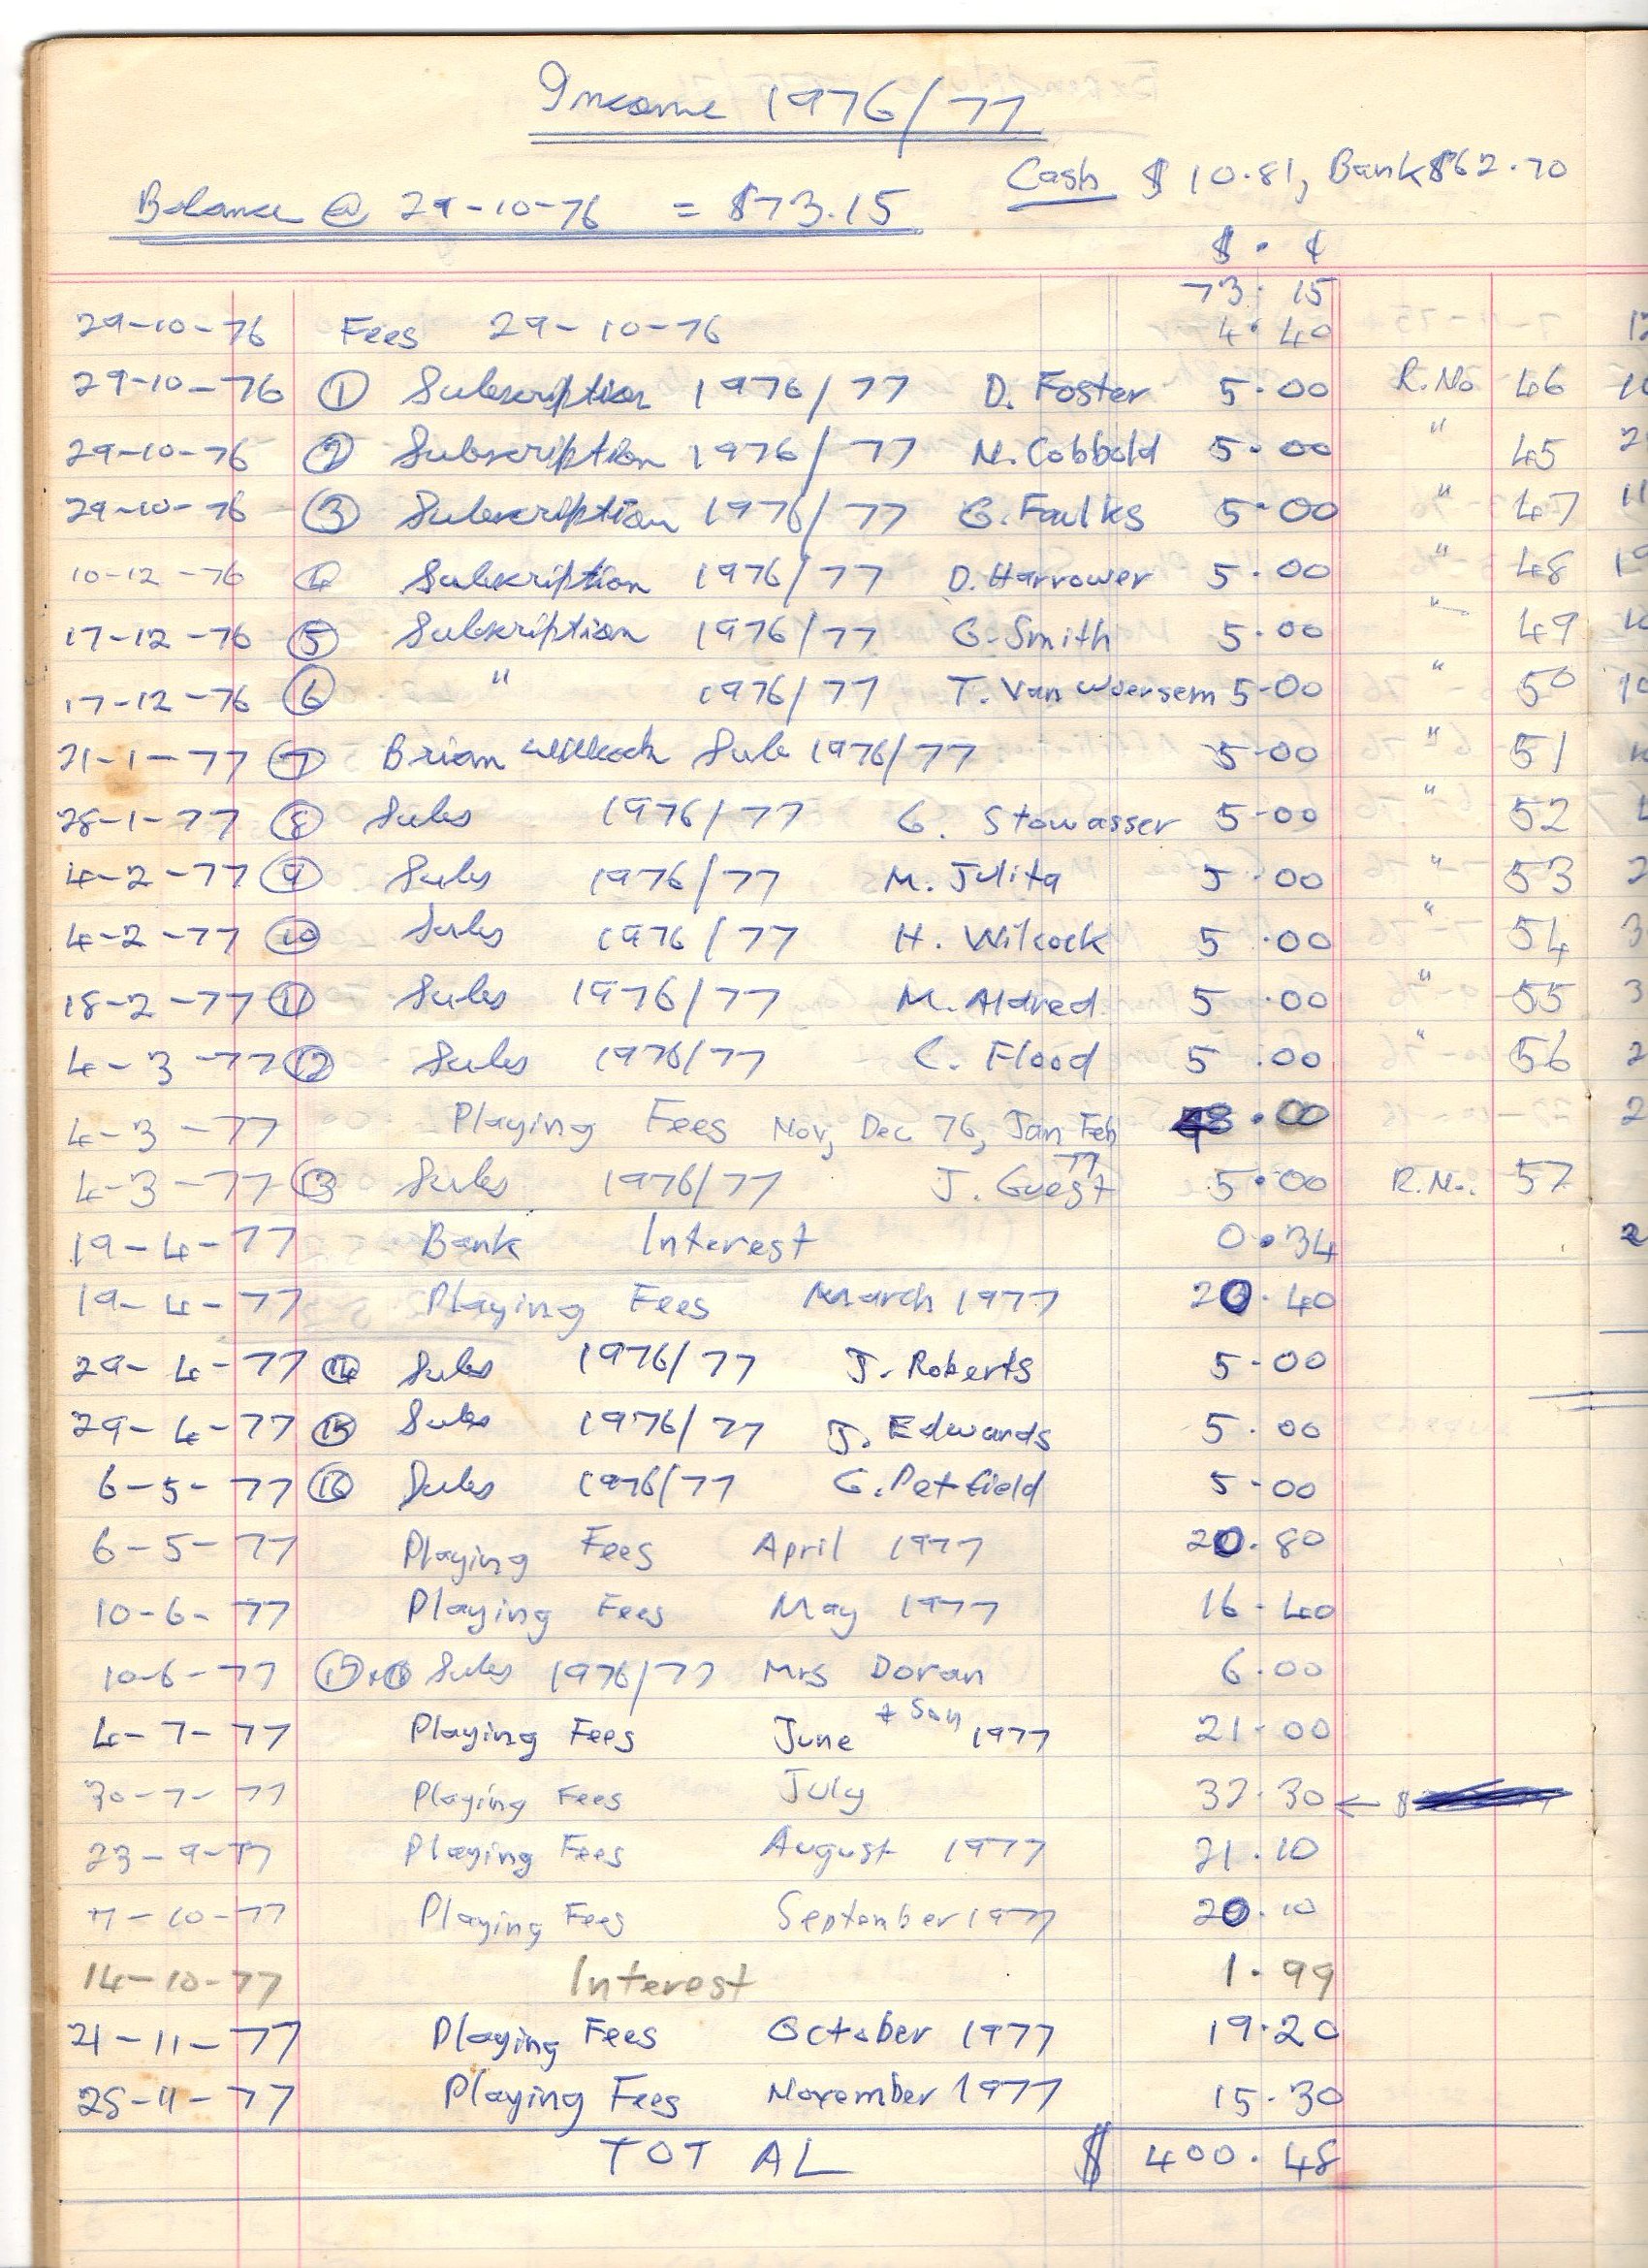 Income 1976/77
Cash $10.81, Bank $62.70
Balance @ 29-10-76 = $73.15
$ . ¢
73.15
29-10-76 Fees 29-10-76 4.40
29-10-76 ① Subscription 1976/77 D. Foster 5.00 R.No 46
29-10-76 ② Subscription 1976/77 N. Cobbold 5.00 " 45
29-10-76 ③ Subscription 1976/77 G. Faulks 5.00 " 47
10-12-76 ④ Subscription 1976/77 D. Harrower 5.00 " 48
17-12-76 ⑤ Subscription 1976/77 G. Smith 5.00 " 49
17-12-76 ⑥ " 1976/77 T. Van Woersem 5-00 " 50
21-1-77 ⑦ Brian Willcock Sub 1976/77 5-00 " 51
28-1-77 ⑧ Subs 1976/77 G. Stowasser 5-00 " 52
4-2-77 ⑨ Subs 1976/77 M. Julita 5.00 " 53
4-2-77 ⑩ Subs 1976/77 H. Wilcock 5.00 " 54
18-2-77 ⑪ Subs 1976/77 M. Aldred 5.00 " 55
4-3-77 ⑫ Subs 1976/77 C. Flood 5.00 " 56
4-3-77 Playing Fees Nov, Dec 76, Jan Feb 77 48.00
4-3-77 ⑬ Subs 1976/77 J. Guest 5.00 R.No. 57
19-4-77 Bank Interest 0.34
19-4-77 Playing Fees March 1977 20.40
29-4-77 ⑭ Subs 1976/77 J. Roberts 5-00
29-4-77 ⑮ Subs 1976/77 J. Edwards 5.00
6-5-77 ⑯ Subs 1976/77 G. Petfield 5-00
6-5-77 Playing Fees April 1977 20.80
10-6-77 Playing Fees May 1977 16-40
10-6-77 ⑰+⑱ Subs 1976/77 Mrs Doran + Son 6.00
4-7-77 Playing Fees June 1977 21-00
30-7-77 Playing Fees July 32.30 ← $
23-9-77 Playing Fees August 1977 21.10
7-10-77 Playing Fees September 1977 20.10
14-10-77 Interest 1.99
21-11-77 Playing Fees October 1977 19.20
25-11-77 Playing Fees November 1977 15.30
TOTAL $ 400.48